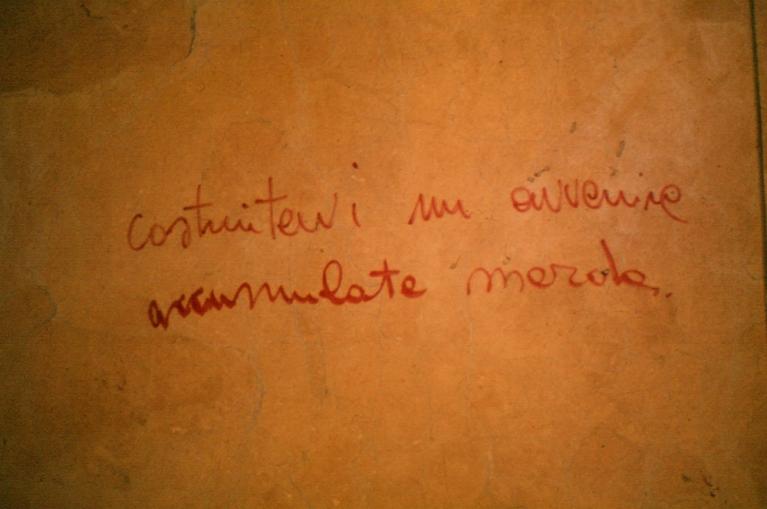 costruitevi un avvenire
accumulate merda.